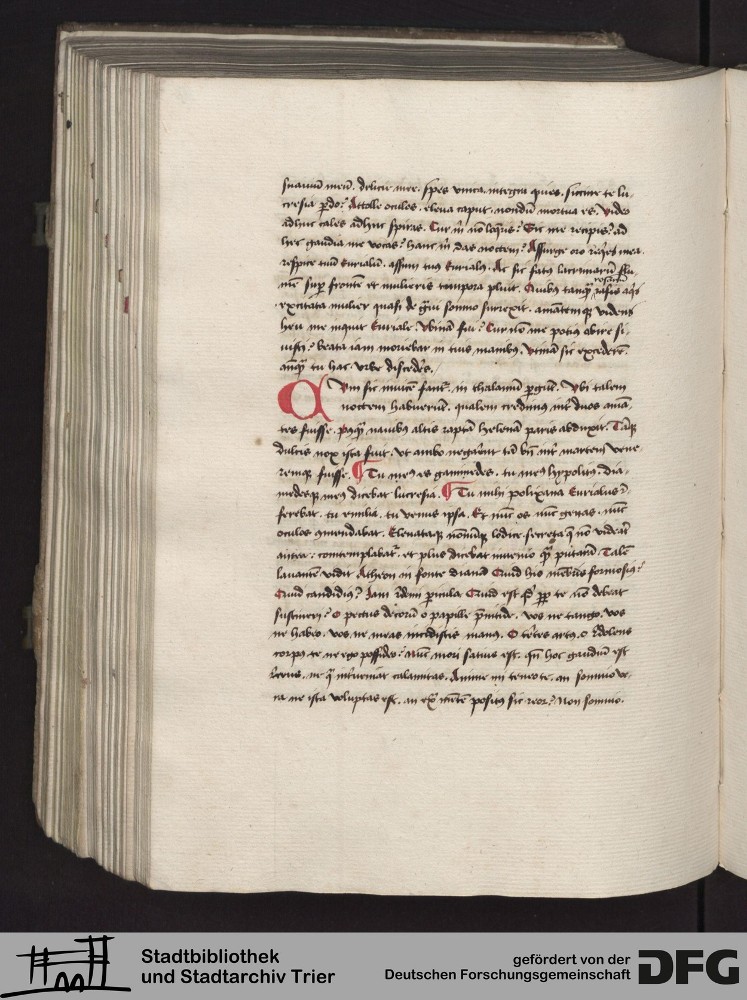 suavium meum. delicie mee. spes unica. integra quies. siccine te lu-
cresia perdo? Attolle oculos. eleva caput. nondum mortua es. Video
adhuc cales adhuc spiras. Cur mihi non loqueris? Sic me recipis? ad
hec gaudia me vocas? hanc mihi das noctem? Assurge oro requies mea
respice tuum Eurialum. assum tuus Eurialus. Ac sic fatus lacrimarum flu-
men super frontem et mulieris tempora pluit. Quibus tanquam rosarum aquis
excitata mulier quasi de gravi somno surrexit. amatemque videns
heu me inquit Euriale. Ubinam fui? Cur non me potius abire si-
visti? beata iam moriebar in tuis manibus. Utinam sic excederem
antequam tu hac urbe discederes.
Dum sic invicem fantur. in thalamum pergunt. Ubi talem
noctem habuerunt. qualem credimus inter duos aman-
tes fuisse. postquam navibus altis raptam helenam paris abduxit. Tamque
dulcis nox ista fuit. ut ambo negarent tam bene inter martem vene-
remque fuisse. Tu meus es ganimedes. tu meus hypolitus. dia-
medesque meus dicebat lucresia. Tu mihi polixena Eurialus re-
ferebat. tu emilia. tu venus ipsa. Et nunc os nunc genas. nunc
oculos commendabat. Elevataque nonnunquam lodice. secreta que non viderat
antea: contemplabatur. et plus dicebat invenio quam putaram. Talem
lavantem vidit Atheon in fonte dianam Quid his membris formosius?
Quid candidius? Iam redemi pericula. Quid est quod propter te non debeat
sustineri? O pectus decorum o papille prenitide. vos ne tango. vos
ne habeo. vos ne meas incidistis manus. O teretes artus. o redolens
corpus te ne ego possideo? Nunc mori satius est. quum hoc gaudium est
recens. ne qua interveniat calamitas. Anime mi teneo te. an somnio. ve-
ra ne ista voluptas est. an extra mentem positus sic reor? Non somnio.
Stadtbibliothek
und Stadtarchiv Trier
gefördert von der
Deutschen Forschungsgemeinschaft
DFG